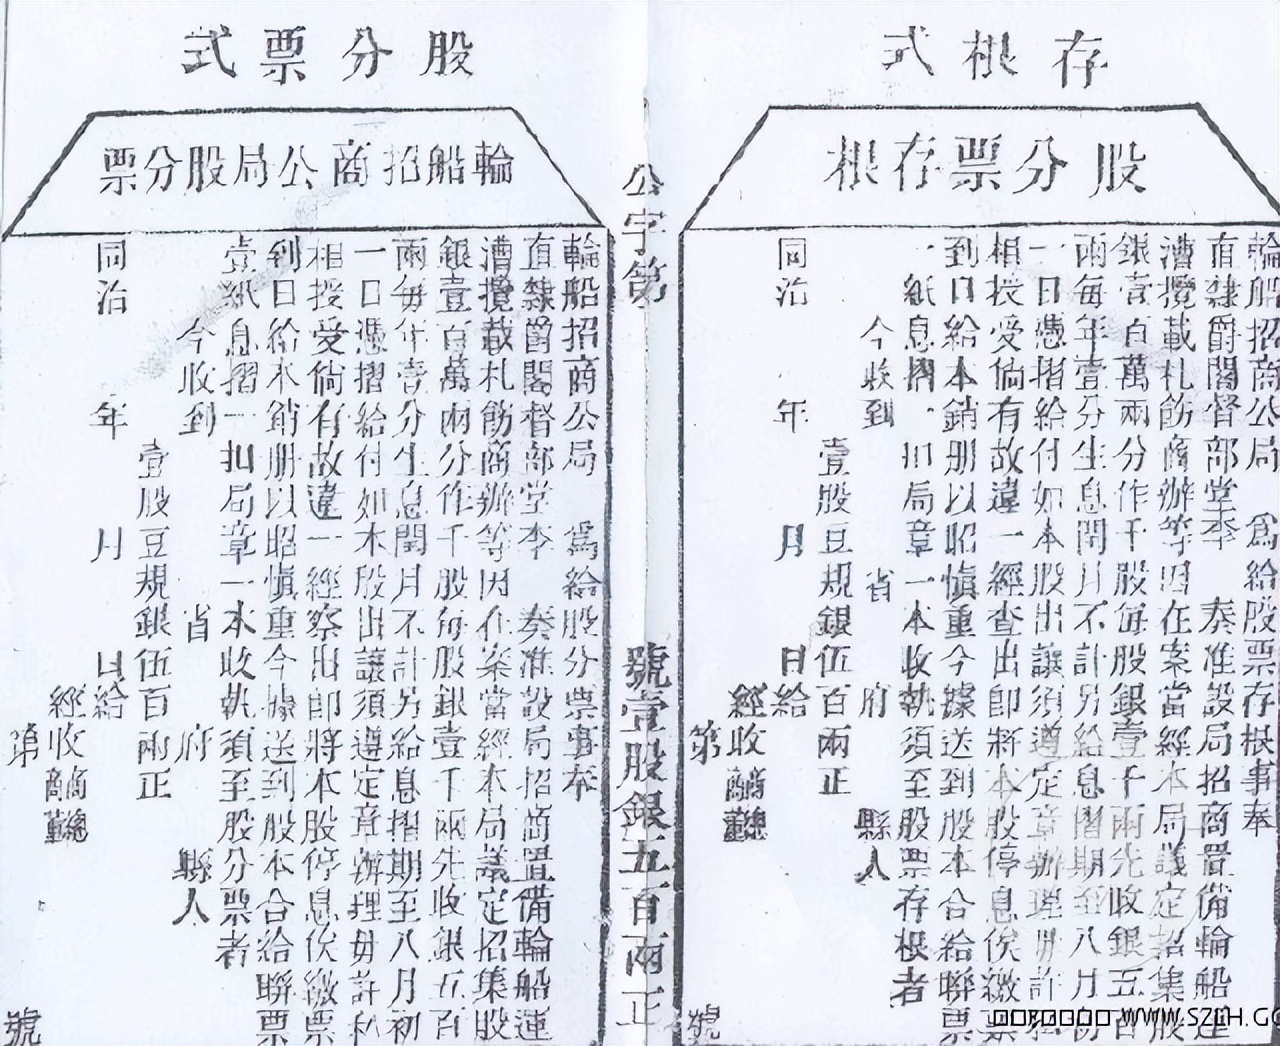 存根式
股分票存根
輪船招商公局 為給股票存根事奉
直隸爵閣督部堂李 奏准設局招商置備輪船運
漕攬載札飭商辦等因在案當經本局議定招集股
銀壹百萬兩分作千股每股銀壹千兩先收銀五百
兩每年壹分生息閏月不計另給息摺期至八月初
一日憑摺給付如本股出讓須遵定章辦理毋許私
相授受倘有故違一經查出即將本股停息俟繳票
到日給本銷册以昭慎重今據送到股本合給聯票
一紙息摺一扣局章一本收執須至股票存根者
今收到 省 府 縣人
壹股豆規銀伍百兩正
同治 年 月 日給
經收商總商董
第 號
公字第 號壹股銀五百兩正
股分票式
輪船招商公局股分票
輪船招商公局 為給股分票事奉
直隸爵閣督部堂李 奏准設局招商置備輪船運
漕攬載札飭商辦等因在案當經本局議定招集股
銀壹百萬兩分作千股每股銀壹千兩先收銀五百
兩每年壹分生息閏月不計另給息摺期至八月初
一日憑摺給付如本股出讓須遵定章辦理毋許私
相授受倘有故違一經察出即將本股停息俟繳票
到日給本銷册以昭慎重今據送到股本合給聯票
壹紙息摺一扣局章一本收執須至股分票者
今收到 省 府 縣人
壹股豆規銀伍百兩正
同治 年 月 日給
經收商總商董
第 號
WWW.SZLH.CO